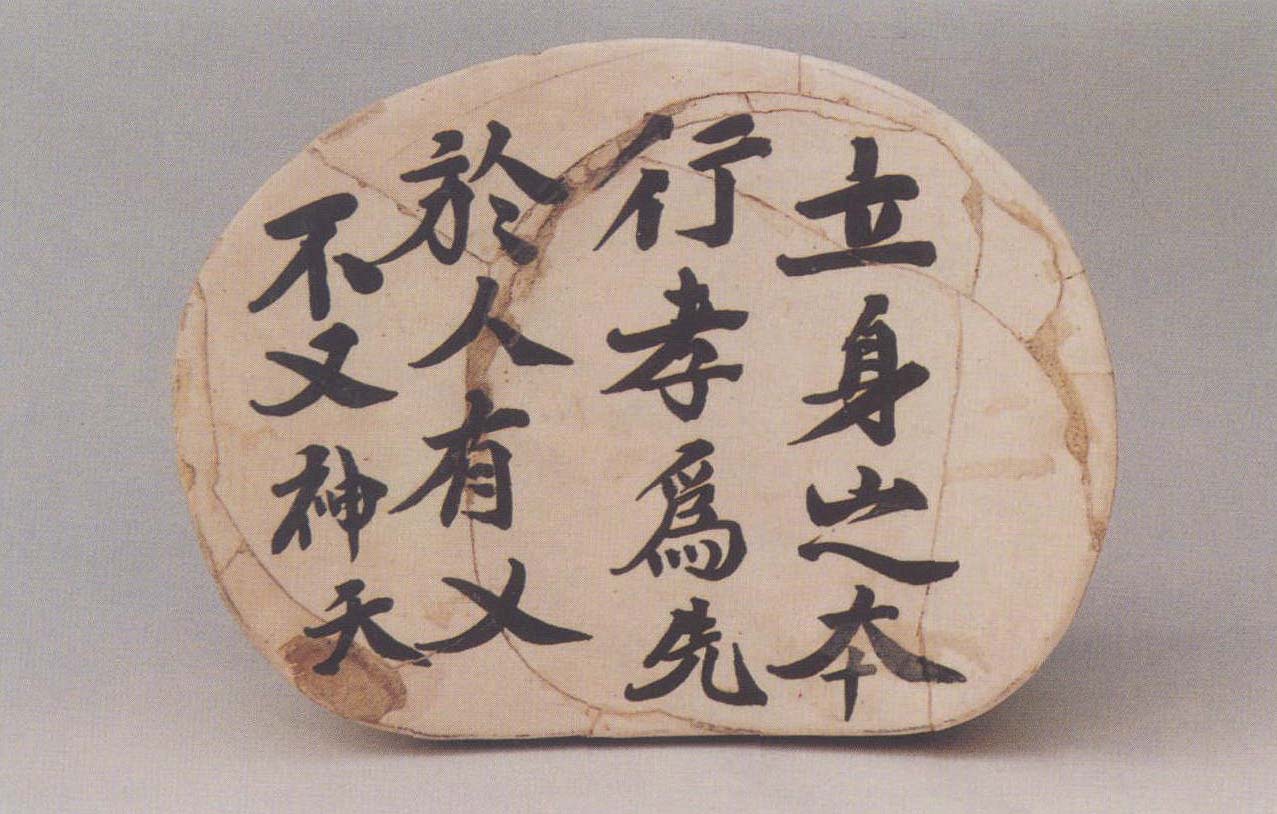 立身之本
行孝爲先
於人有乂
不又神天